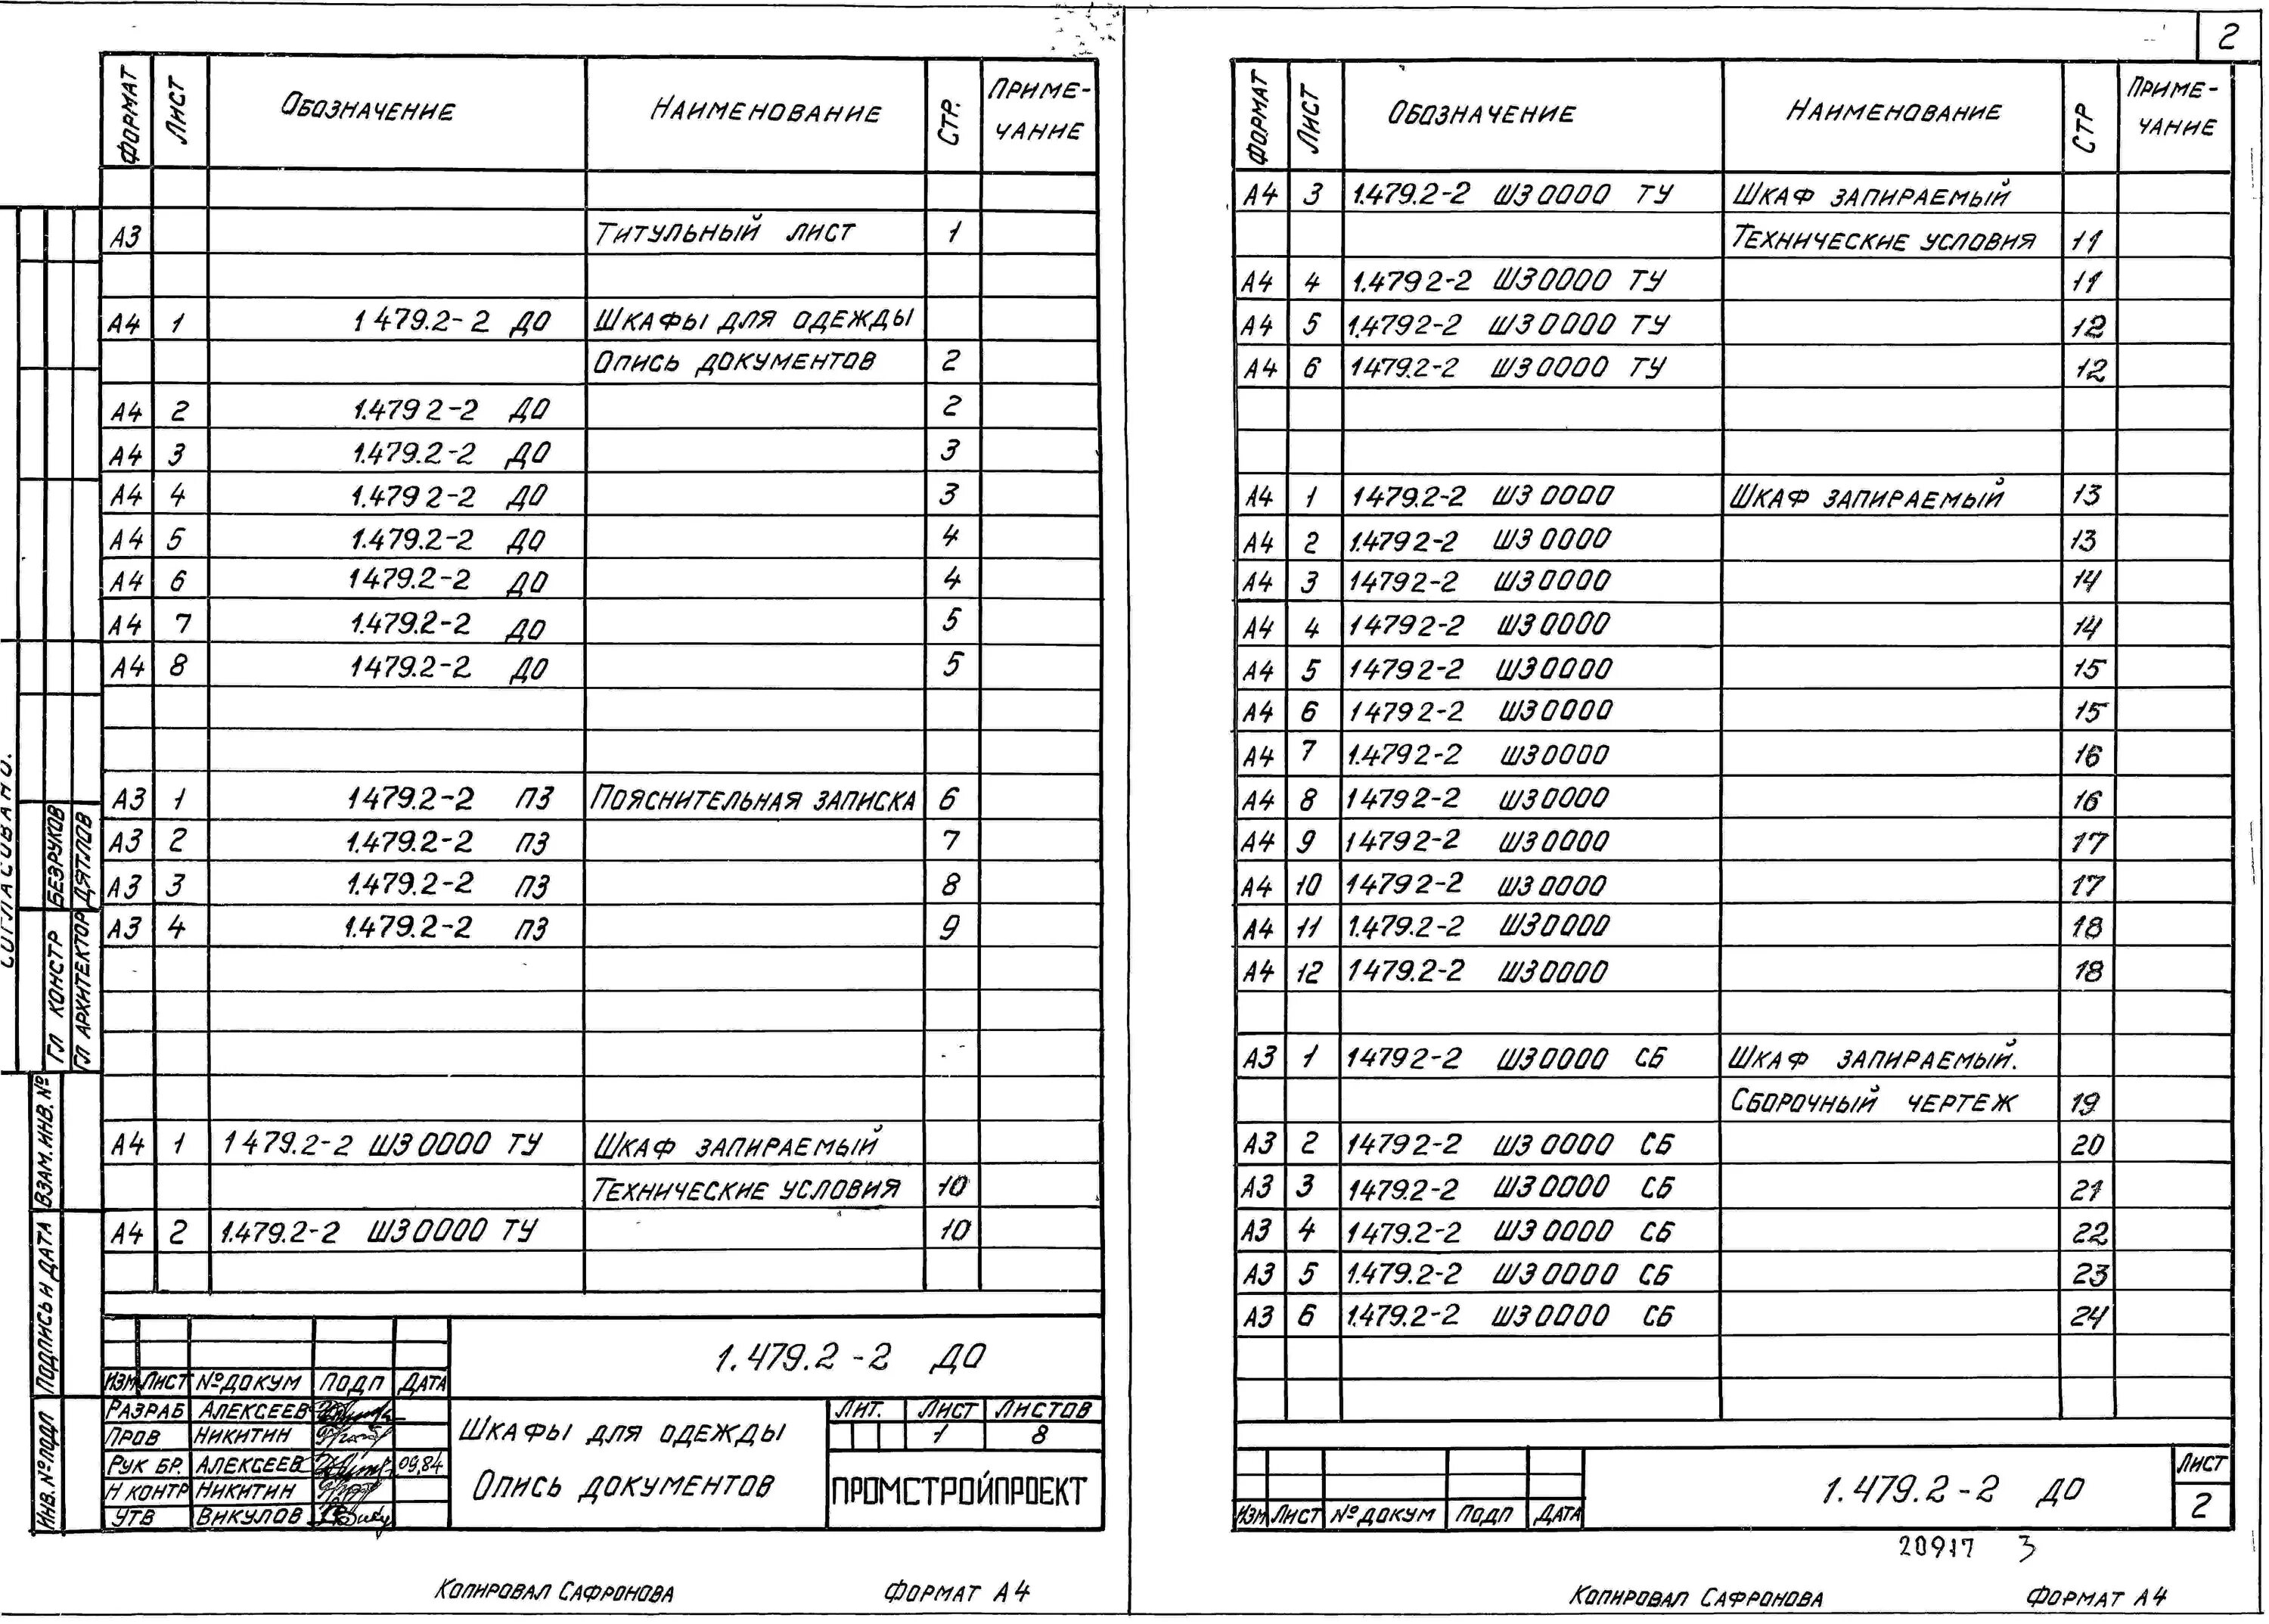 2
ФОРМАТ ЛИСТ ОБОЗНАЧЕНИЕ НАИМЕНОВАНИЕ СТР. ПРИМЕ-
ЧАНИЕ
А3 ТИТУЛЬНЫЙ ЛИСТ 1
А4 1 1 479.2-2 ДО ШКАФЫ ДЛЯ ОДЕЖДЫ
ОПИСЬ ДОКУМЕНТОВ 2
А4 2 1.479 2-2 ДО 2
А4 3 1.479.2-2 ДО 3
А4 4 1.479 2-2 ДО 3
А4 5 1.479.2-2 ДО 4
А4 6 1479.2-2 ДО 4
А4 7 1.479.2-2 ДО 5
А4 8 1479.2-2 ДО 5
А3 1 1479.2-2 ПЗ ПОЯСНИТЕЛЬНАЯ ЗАПИСКА 6
А3 2 1.479.2-2 ПЗ 7
А3 3 1.479.2-2 ПЗ 8
А3 4 1.479.2-2 ПЗ 9
А4 1 1479.2-2 ШЗ 0000 ТУ ШКАФ ЗАПИРАЕМЫЙ
ТЕХНИЧЕСКИЕ УСЛОВИЯ 10
А4 2 1.479.2-2 ШЗ 0000 ТУ 10
СОГЛАСОВАНО.
ГЛ КОНСТР БЕЗРУКОВ
ГЛ АРХИТЕКТОР ДЯТЛОВ
ВЗАМ. ИНВ. №
ПОДПИСЬ И ДАТА
ИНВ. № ПОДЛ
1.479.2-2 ДО
ИЗМ ЛИСТ № ДОКУМ ПОДП ДАТА
РАЗРАБ АЛЕКСЕЕВ
ПРОВ НИКИТИН
РУК БР. АЛЕКСЕЕВ 09,84
Н КОНТР НИКИТИН
УТВ ВИКУЛОВ
ШКАФЫ ДЛЯ ОДЕЖДЫ
ОПИСЬ ДОКУМЕНТОВ
ЛИТ. ЛИСТ ЛИСТОВ
1 8
ПРОМСТРОЙПРОЕКТ
КОПИРОВАЛ САФРОНОВА ФОРМАТ А4
ФОРМАТ ЛИСТ ОБОЗНАЧЕНИЕ НАИМЕНОВАНИЕ СТР ПРИМЕ-
ЧАНИЕ
А4 3 1.479.2-2 ШЗ 0000 ТУ ШКАФ ЗАПИРАЕМЫЙ
ТЕХНИЧЕСКИЕ УСЛОВИЯ 11
А4 4 1.479 2-2 ШЗ 0000 ТУ 11
А4 5 1.479 2-2 ШЗ 0000 ТУ 12
А4 6 1479.2-2 ШЗ 0000 ТУ 12
А4 1 1479.2-2 ШЗ 0000 ШКАФ ЗАПИРАЕМЫЙ 13
А4 2 1.479 2-2 ШЗ 0000 13
А4 3 1479 2-2 ШЗ 0000 14
А4 4 1479 2-2 ШЗ 0000 14
А4 5 1479 2-2 ШЗ 0000 15
А4 6 1479 2-2 ШЗ 0000 15
А4 7 1.479 2-2 ШЗ 0000 16
А4 8 1479 2-2 ШЗ 0000 16
А4 9 1479 2-2 ШЗ 0000 17
А4 10 1479 2-2 ШЗ 0000 17
А4 11 1.479.2-2 ШЗ 0000 18
А4 12 1479.2-2 ШЗ 0000 18
А3 1 1479 2-2 ШЗ 0000 СБ ШКАФ ЗАПИРАЕМЫЙ.
СБОРОЧНЫЙ ЧЕРТЕЖ 19
А3 2 1479 2-2 ШЗ 0000 СБ 20
А3 3 1479.2-2 ШЗ 0000 СБ 21
А3 4 1479.2-2 ШЗ 0000 СБ 22
А3 5 1.479.2-2 ШЗ 0000 СБ 23
А3 6 1.479.2-2 ШЗ 0000 СБ 24
ИЗМ ЛИСТ № ДОКУМ ПОДП ДАТА
1.479.2-2 ДО
ЛИСТ
2
20917 3
КОПИРОВАЛ САФРОНОВА ФОРМАТ А4